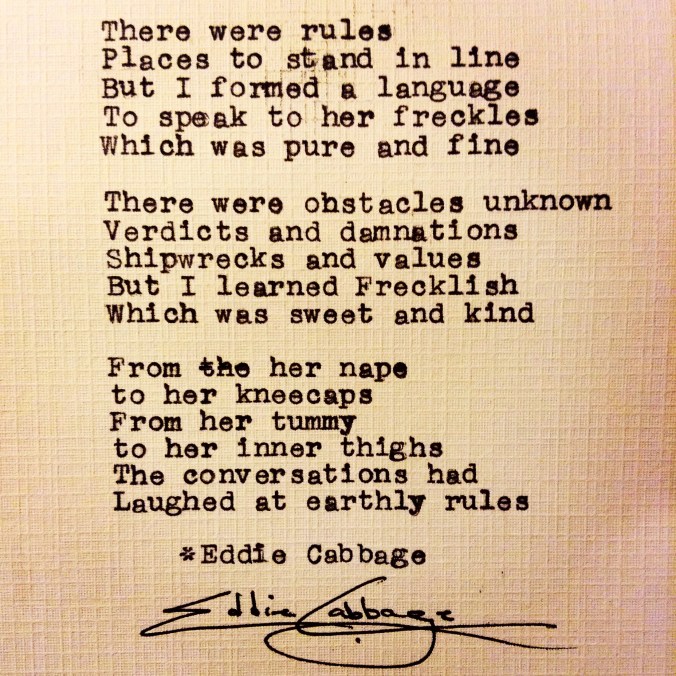 There were rules
Places to stand in line
But I formed a language
To speak to her freckles
Which was pure and fine
There were obstacles unknown
Verdicts and damnations
Shipwrecks and values
But I learned Frecklish
Which was sweet and kind
From the her nape
to her kneecaps
From her tummy
to her inner thighs
The conversations had
Laughed at earthly rules
*Eddie Cabbage
Eddie Cabbage